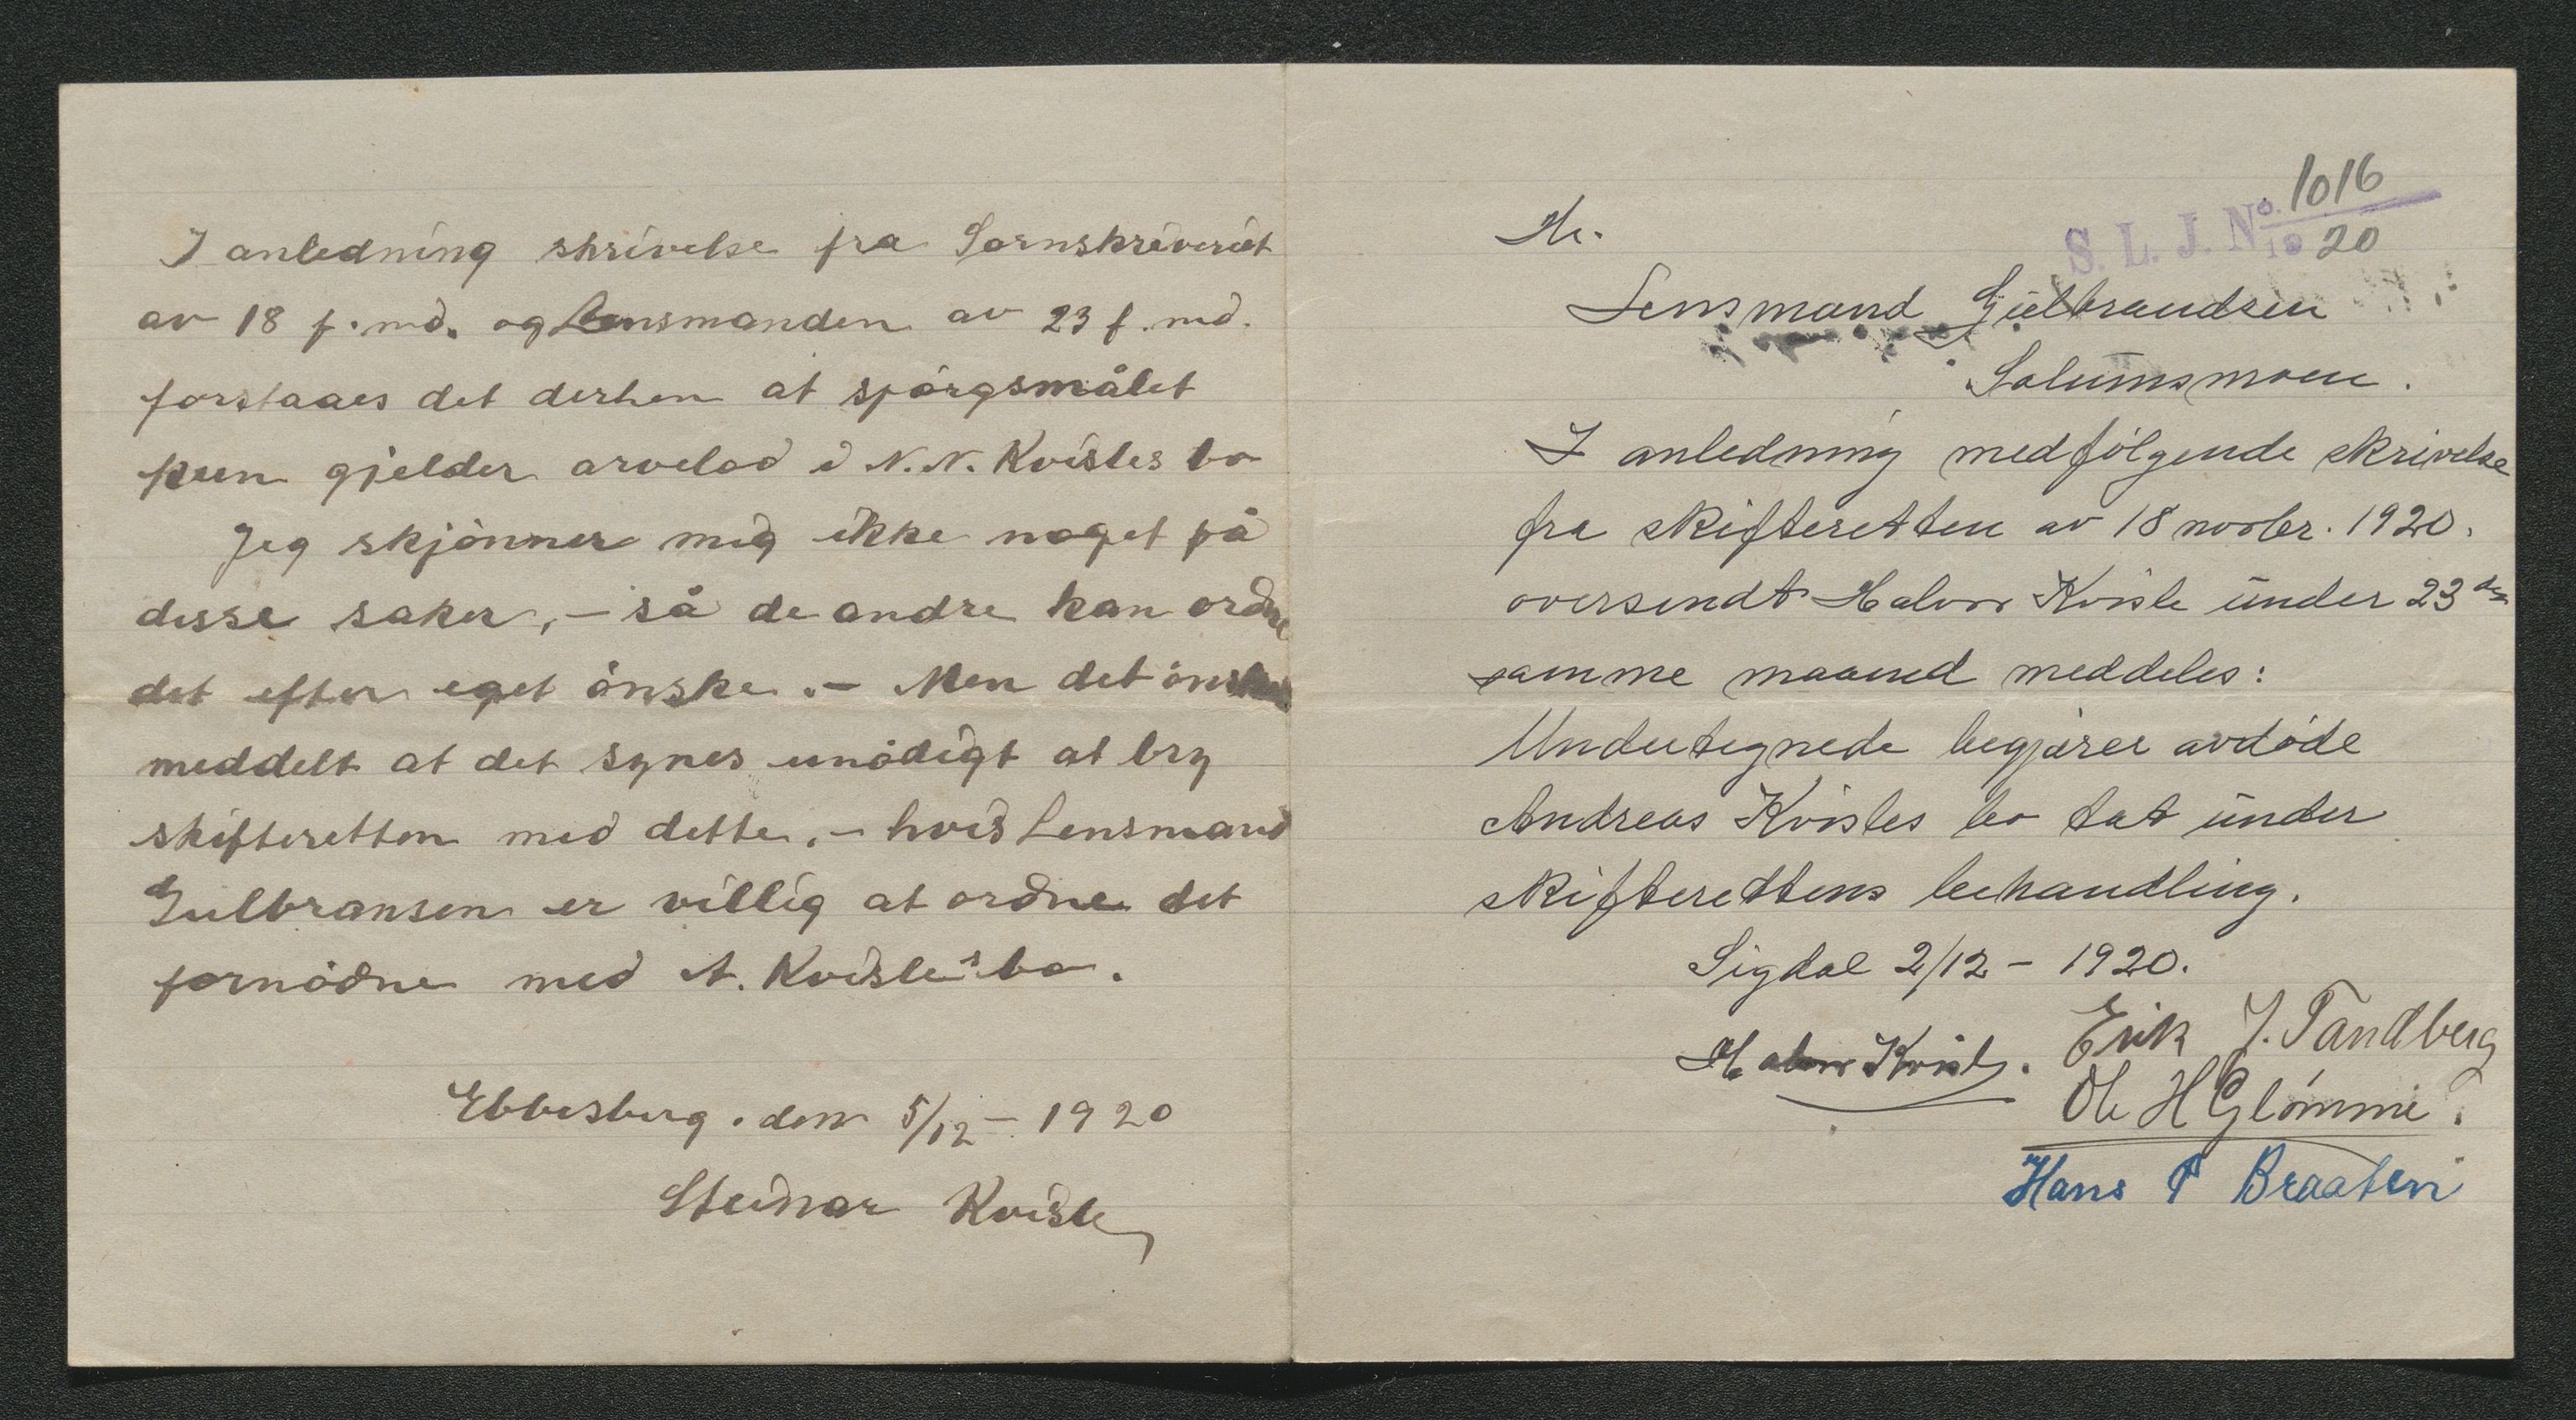 I anledning skrivelse fra Sornskriveriet
av 18 f. md. og Lensmanden av 23 f. md.
forstaaes det derhen at spörgsmålet
kun gjelder arvelod i N. N. Kvisles bo
Jeg skjönner mig ikke noget på
disse saker, – så de andre kan ordne
det efter eget önske. – Men det önskes
meddelt at det synes unödigt at bry
skifteretten med dette, – hvis Lensmand
Gulbransen er villig at ordne det
fornödne med A. Kvisle's bo.
Ebbesberg. den 5/12 – 1920
Steinar Kvisle
S. L. J. No. 1016
19 20
Hr.
Lensmand Gulbrandsen
Solumsmoen.
I anledning medfölgende skrivelse
fra skifteretten av 18 novbr. 1920.
oversendt Halvor Kvisle under 23 ds
samme maaned meddeles:
Undertegnede begjærer avdöde
Andreas Kvisles bo tat under
skifterettens behandling.
Sigdal 2/12 – 1920.
Halvor Kvisle. Erik J. Tandberg
Ole H Glömmi.
Hans P Braaten